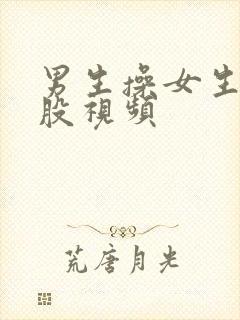 男生操女生
股視頻
荒唐月光